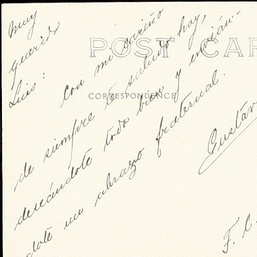 Muy
querido
Luis:
con mi cariño
de siempre te saludo hoy,
deseándote todo bien y envián-
dote un abrazo fraternal.
Gustav
F. C.
POST CAR
CORRESPONDENCE